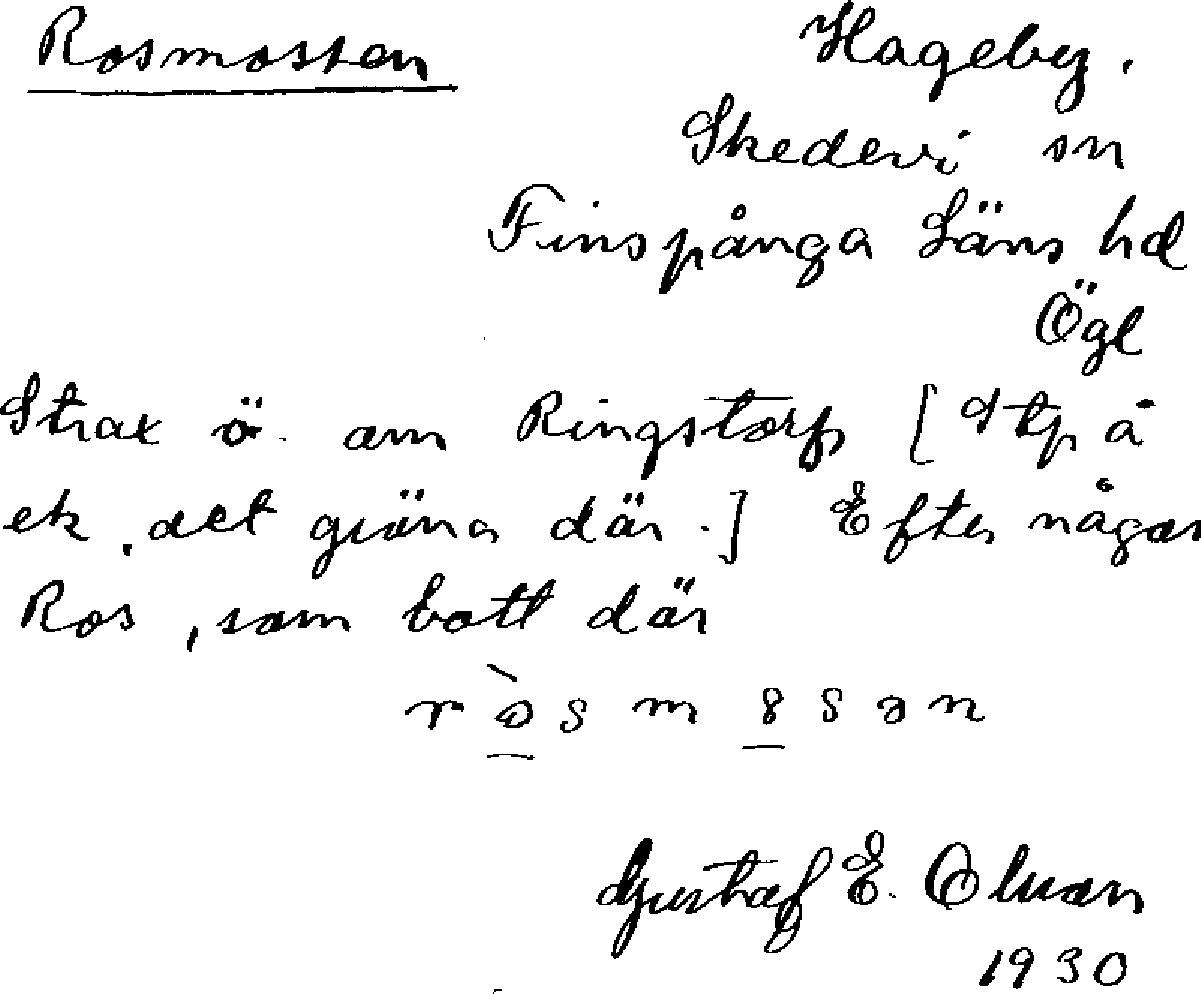 Rosmossen
Hageby.
Skedevi sn
Finspånga Läns hd
Ögl
Strax ö. om Ringstorp [dtp å
ek, det gröna där.] Efter någon
Ros, som bott där
Gustaf E. Olson
1930